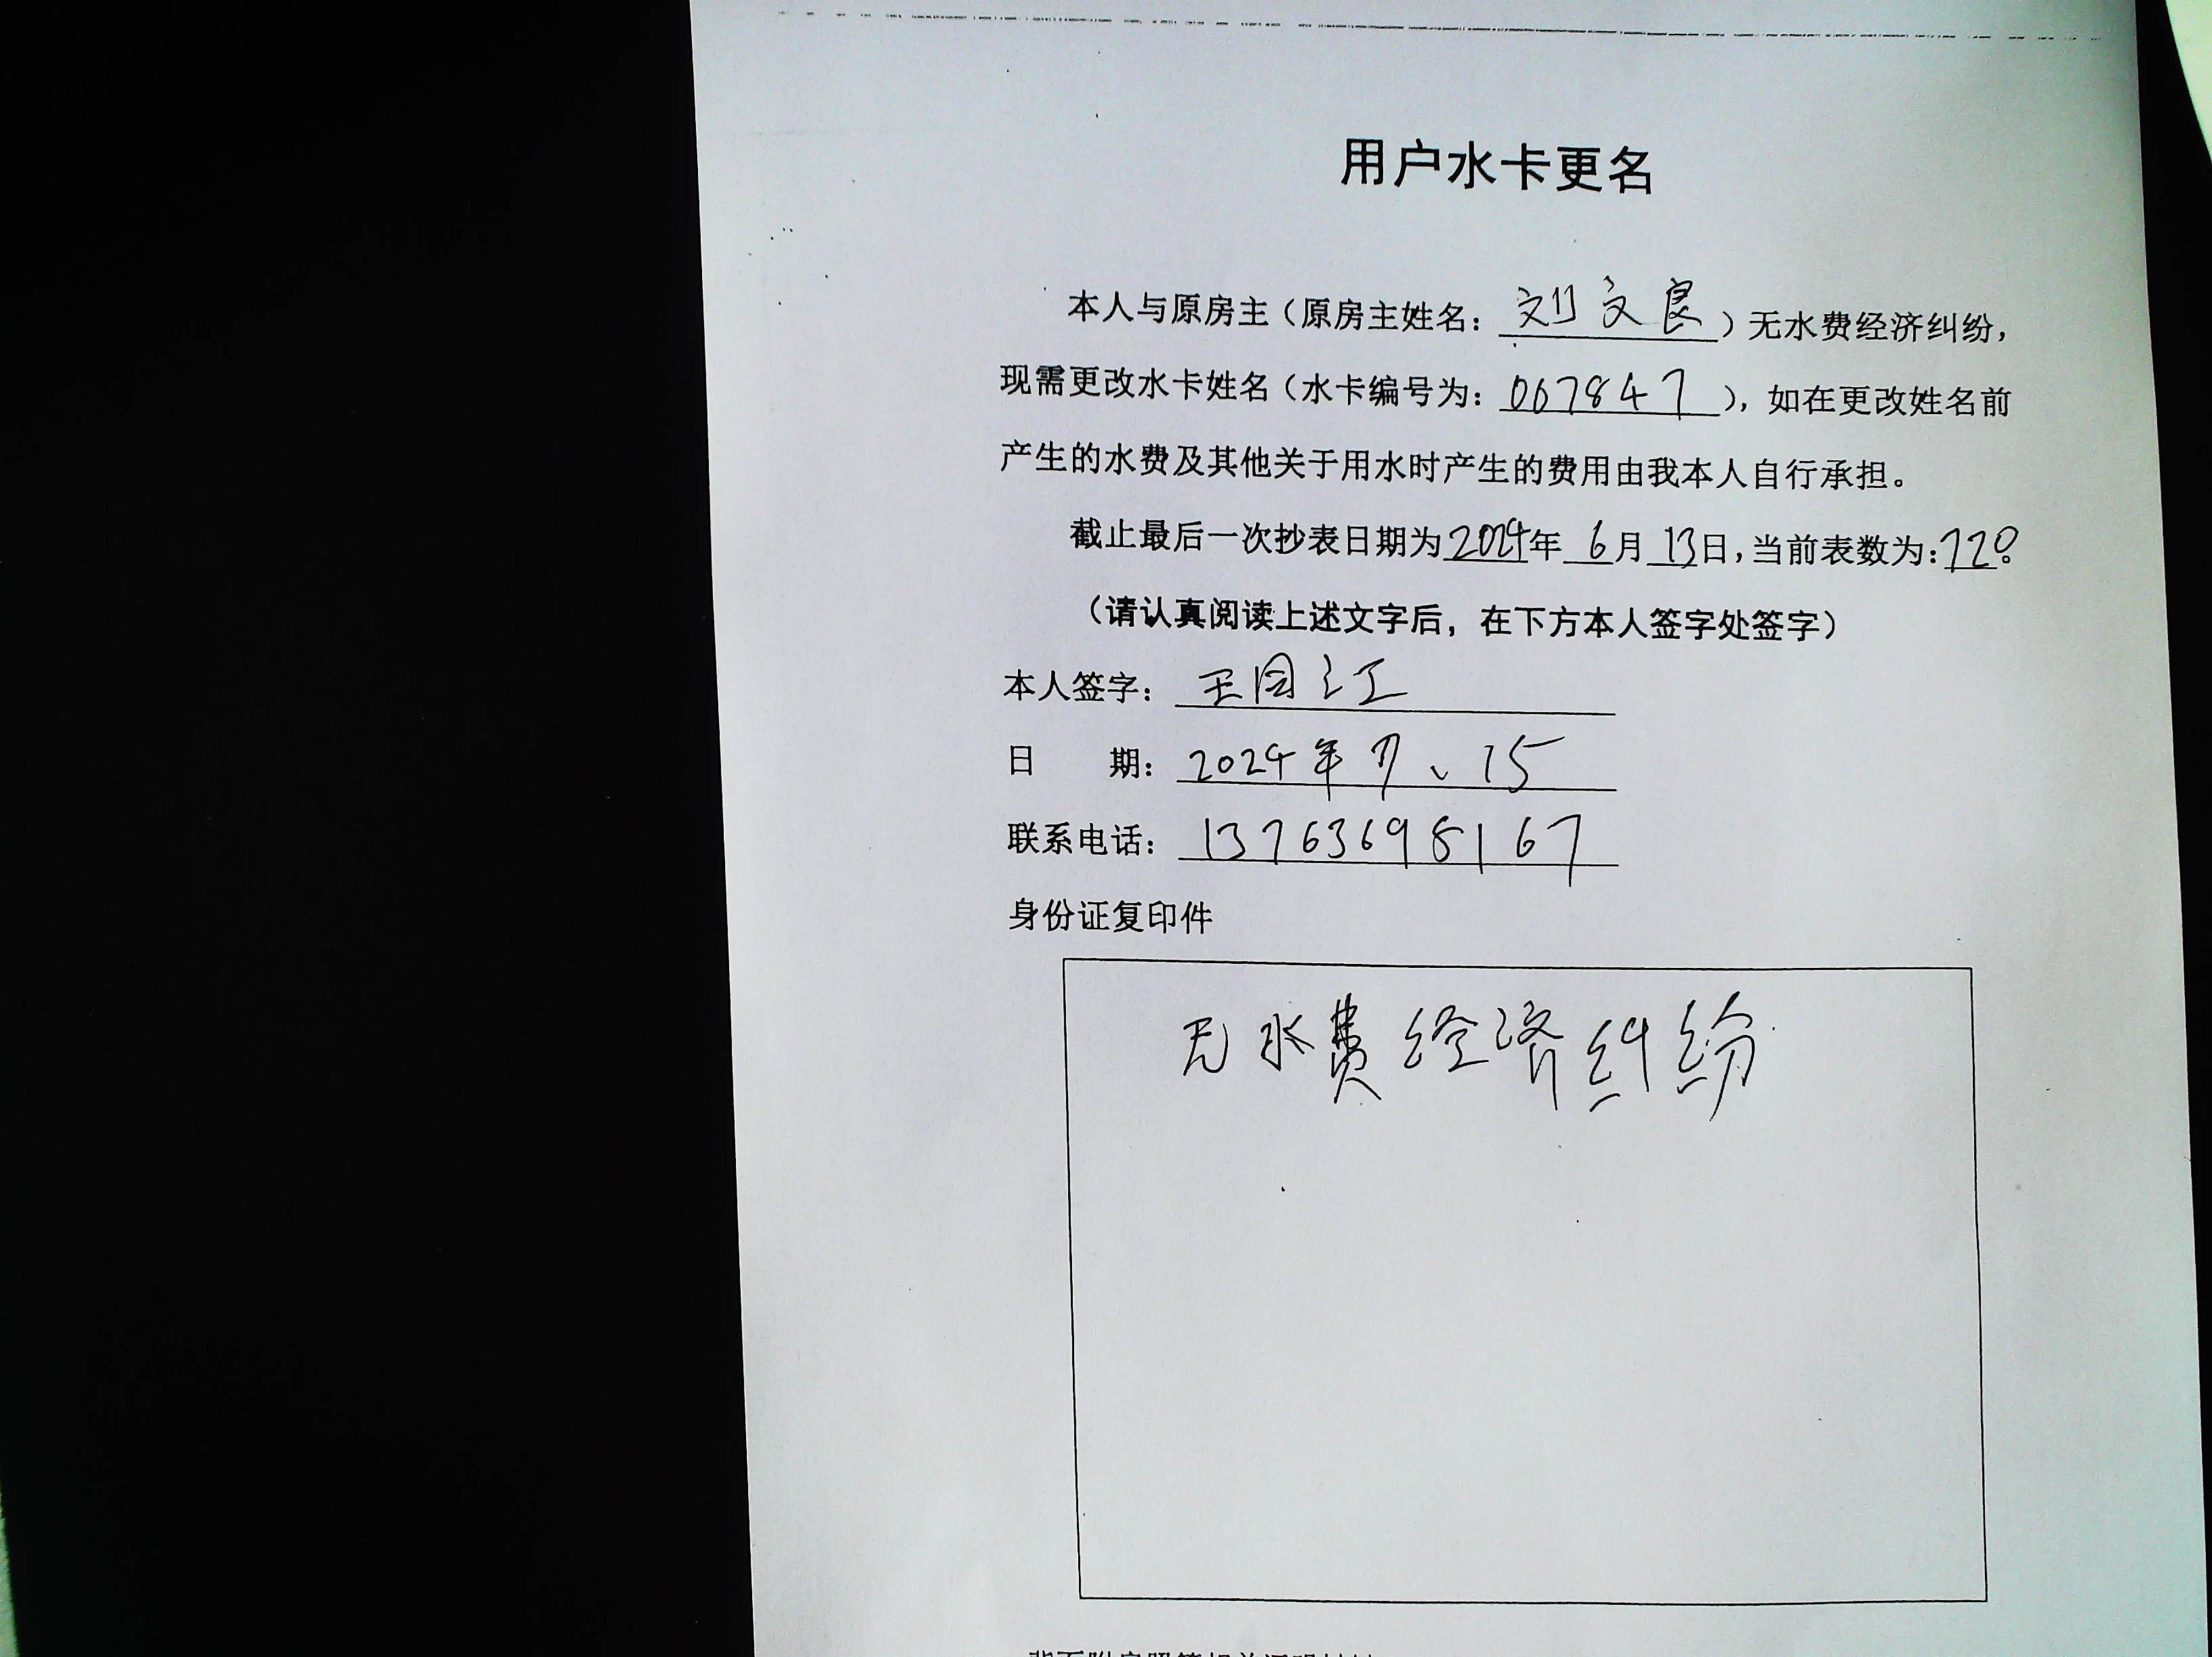 用户水卡更名
本人与原房主（原房主姓名：刘文良）无水费经济纠纷，
现需更改水卡姓名（水卡编号为：067847），如在更改姓名前
产生的水费及其他关于用水时产生的费用由我本人自行承担。
截止最后一次抄表日期为2024年6月13日，当前表数为：720
（请认真阅读上述文字后，在下方本人签字处签字）
本人签字：王国江
日 期：2024年7、15
联系电话：13763698167
身份证复印件
无水费经济纠纷